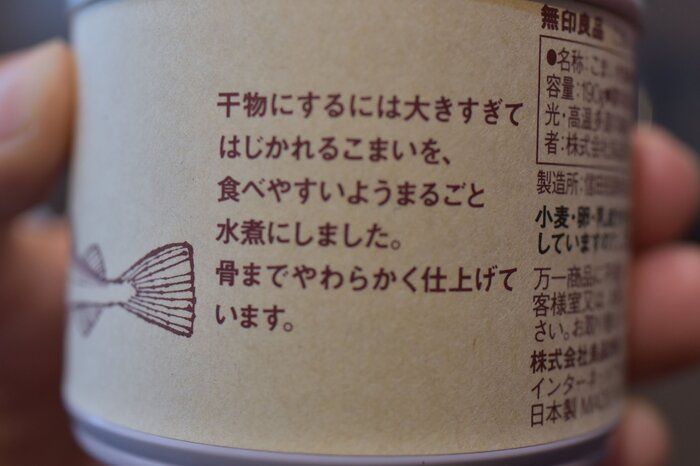 干物にするには大きすぎて
はじかれるこまいを、
食べやすいようまるごと
水煮にしました。
骨までやわらかく仕上げて
います。
無印良品
●名称:こまい
容量:190g
光・高温多
者:株式会
製造所:
小麦・卵・乳
しています
万一商品に
客様室又は
さい。お
株式会社良品
インターネ
日本製 MA